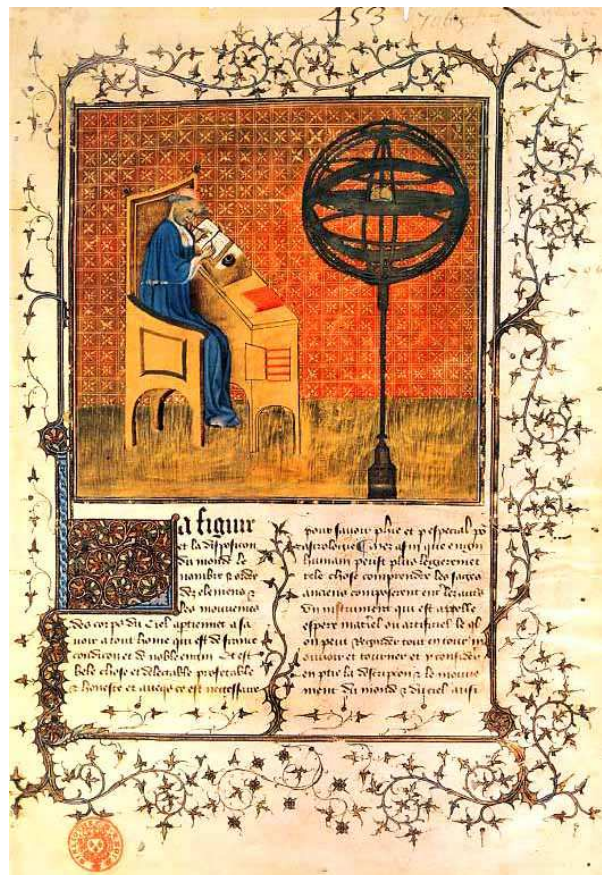 453 7065
La figure
et la disposicion
du monde le
nombre & ordre
des elemens &
les mouvemens
des corps du ciel aptienent a sa
voir a tout home qui est de france
condicion et de noble engin Et est
bele chose et delectable profetable
& honeste et avecqs ce est necessaire
pour savoir et p especial po
astrologie afin que engin
humain peust plus legieremet
tele chose comprendre les sages
anciens composerent
un instrument qui est appelle
espere materiel ou artificiel le ql
on peut regarder tout entour m
ouvoir et tourner et y considerer
en ptie la descripcion & le mouve
ment du monde & du ciel ausi